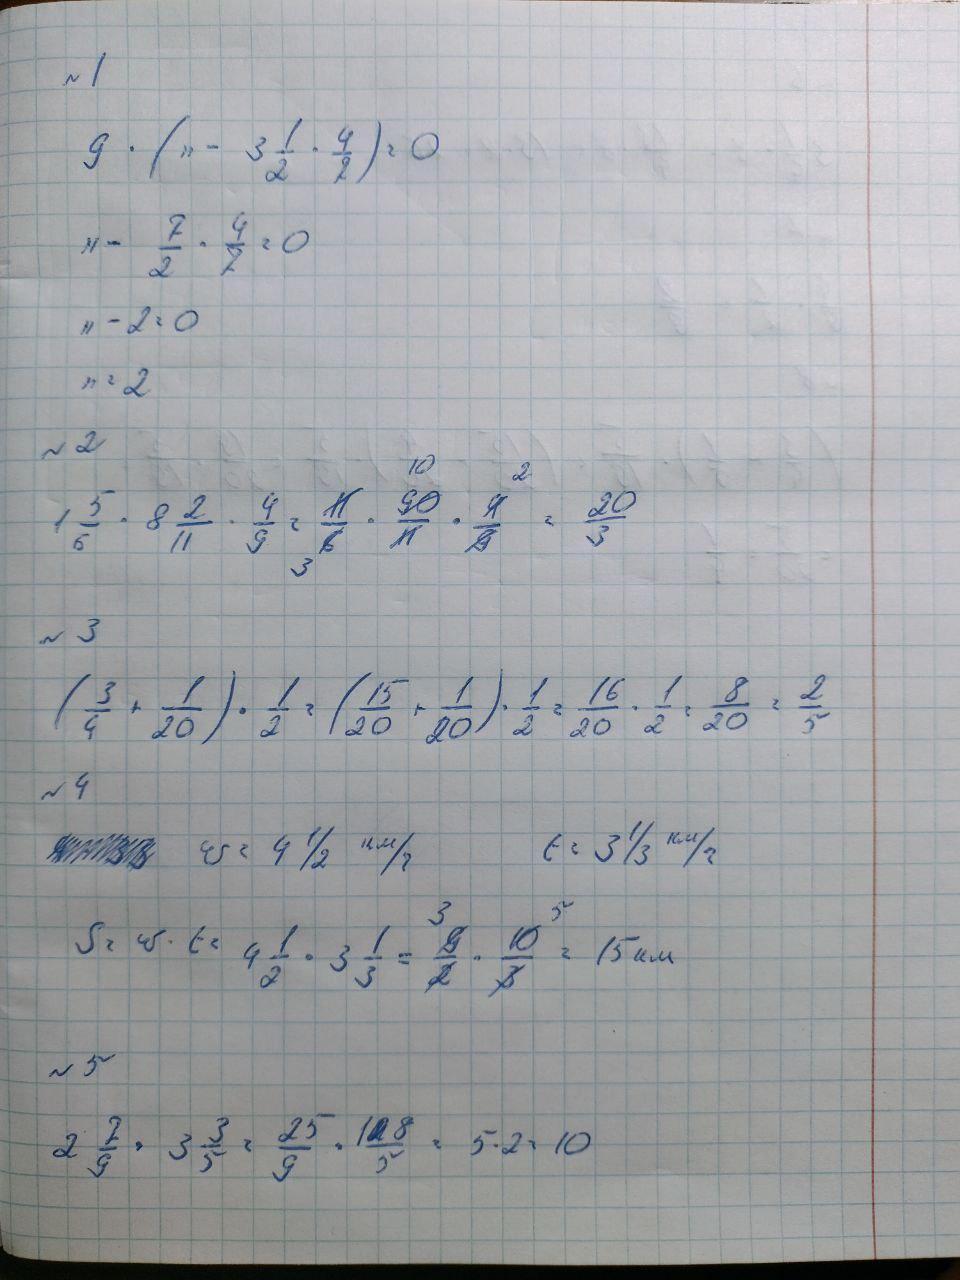 №1
9 · (n - 3 1/2 · 4/7) = 0
n - 7/2 · 4/7 = 0
n - 2 = 0
n = 2
№2
1 5/6 · 8 2/11 · 4/9 = 11/6 · 90/11 · 4/9 = 20/3
10 2
3
№3
(3/4 + 1/20) · 1/2 = (15/20 + 1/20) · 1/2 = 16/20 · 1/2 = 8/20 = 2/5
№4
v = 4 1/2 км/ч t = 3 1/3 км/ч
S = v · t = 4 1/2 · 3 1/3 = 9/2 · 10/3 = 15 км
3 5
№5
2 7/9 · 3 3/5 = 25/9 · 18/5 = 5 · 2 = 10